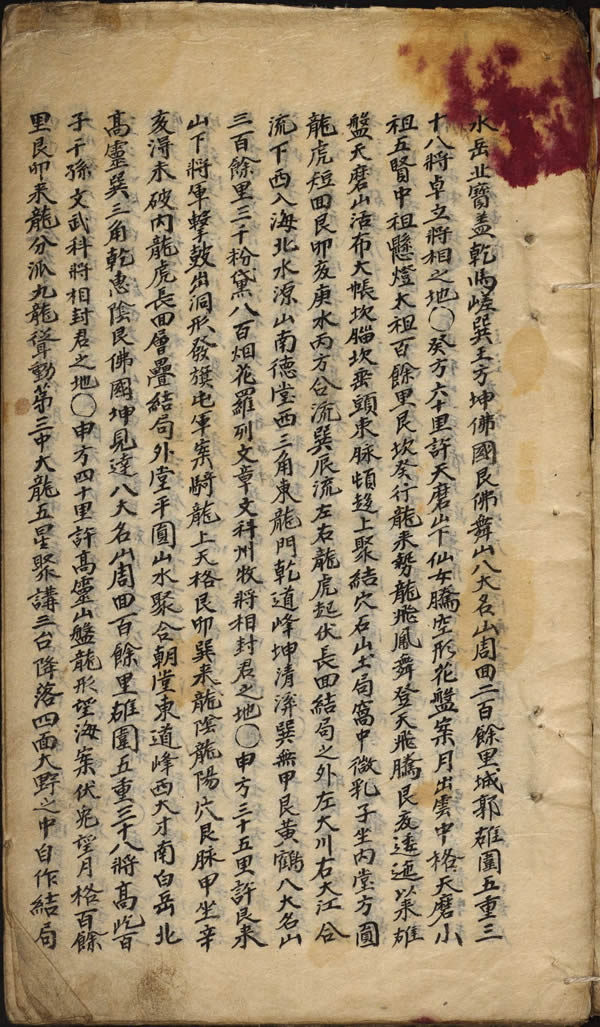 水岳北寶盖乾馬嵯巽王方坤佛國艮佛舞山八大名山周回二百餘里城郭雄圍五重三
十八將卓立將相之地〇癸方六十里許天磨山下仙女騰空形花盤案月出雲中格天磨小
祖五賢中祖懸燈太祖百餘里艮坎癸行龍来勢龍飛鳳舞登天飛騰艮亥透迤以来雄
盤天磨山活布大帳坎腦坎垂頭東脉頓起上聚結穴石山土局窩中微乳子坐内堂方圓
龍虎短回艮卯亥庚水丙方合流巽辰流左右龍虎起伏長回結局之外左大川右大江合
流下西入海北水源山南德堂西三角東龍門乾道峰坤清溪巽無甲艮黄鶴八大名山
三百餘里三千粉黛八百烟花羅列文章文科州牧將相封君之地〇申方三十五里許艮来
山下將軍擊鼓出洞形發旗屯軍案騎龍上天格艮卯巽来龍陰龍陽穴艮脉甲坐辛
亥得未破内龍虎長回層疊結局外堂平圓山水聚合朝堂東道峰西大才南白岳北
高靈巽三角乾惠陰艮佛國坤見達八大名山周回百餘里雄圍五重三十八將高屹百
子千孫文武科將相封君之地〇申方四十里許高靈山盤龍形望海案伏兎望月格百餘
里艮卯来龍分派九龍聳動第三中大龍五星聚講三台降落四面大野之中自作結局